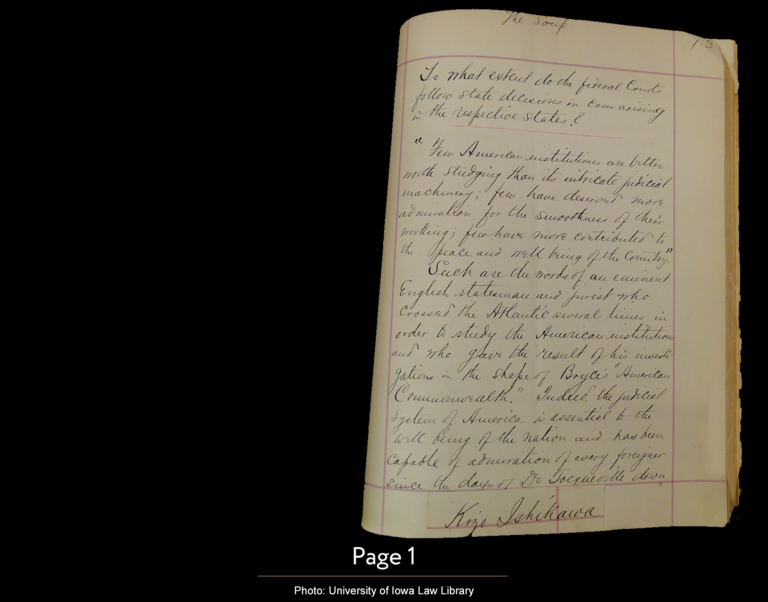 The
To what extent do the federal Courts
follow state decisions in cases arising
in the respective states?
"Few American institutions are better
worth studying than its intricate judicial
machinery; few have deserved more
admiration for the smoothness of their
working; few have more contributed to
the peace and well being of the Country."
Such are the words of an eminent
English statesman and jurist who
crossed the Atlantic several times in
order to study the American institutions
and who gave the result of his investi-
gations in the shape of Bryce's "American
Commonwealth." Indeed, the judicial
system of America is essential to the
well being of the nation and has been
capable of admiration of every foreigner
since the days of De Tocqueville down
Kizo Ishikawa
Page 1
Photo: University of Iowa Law Library